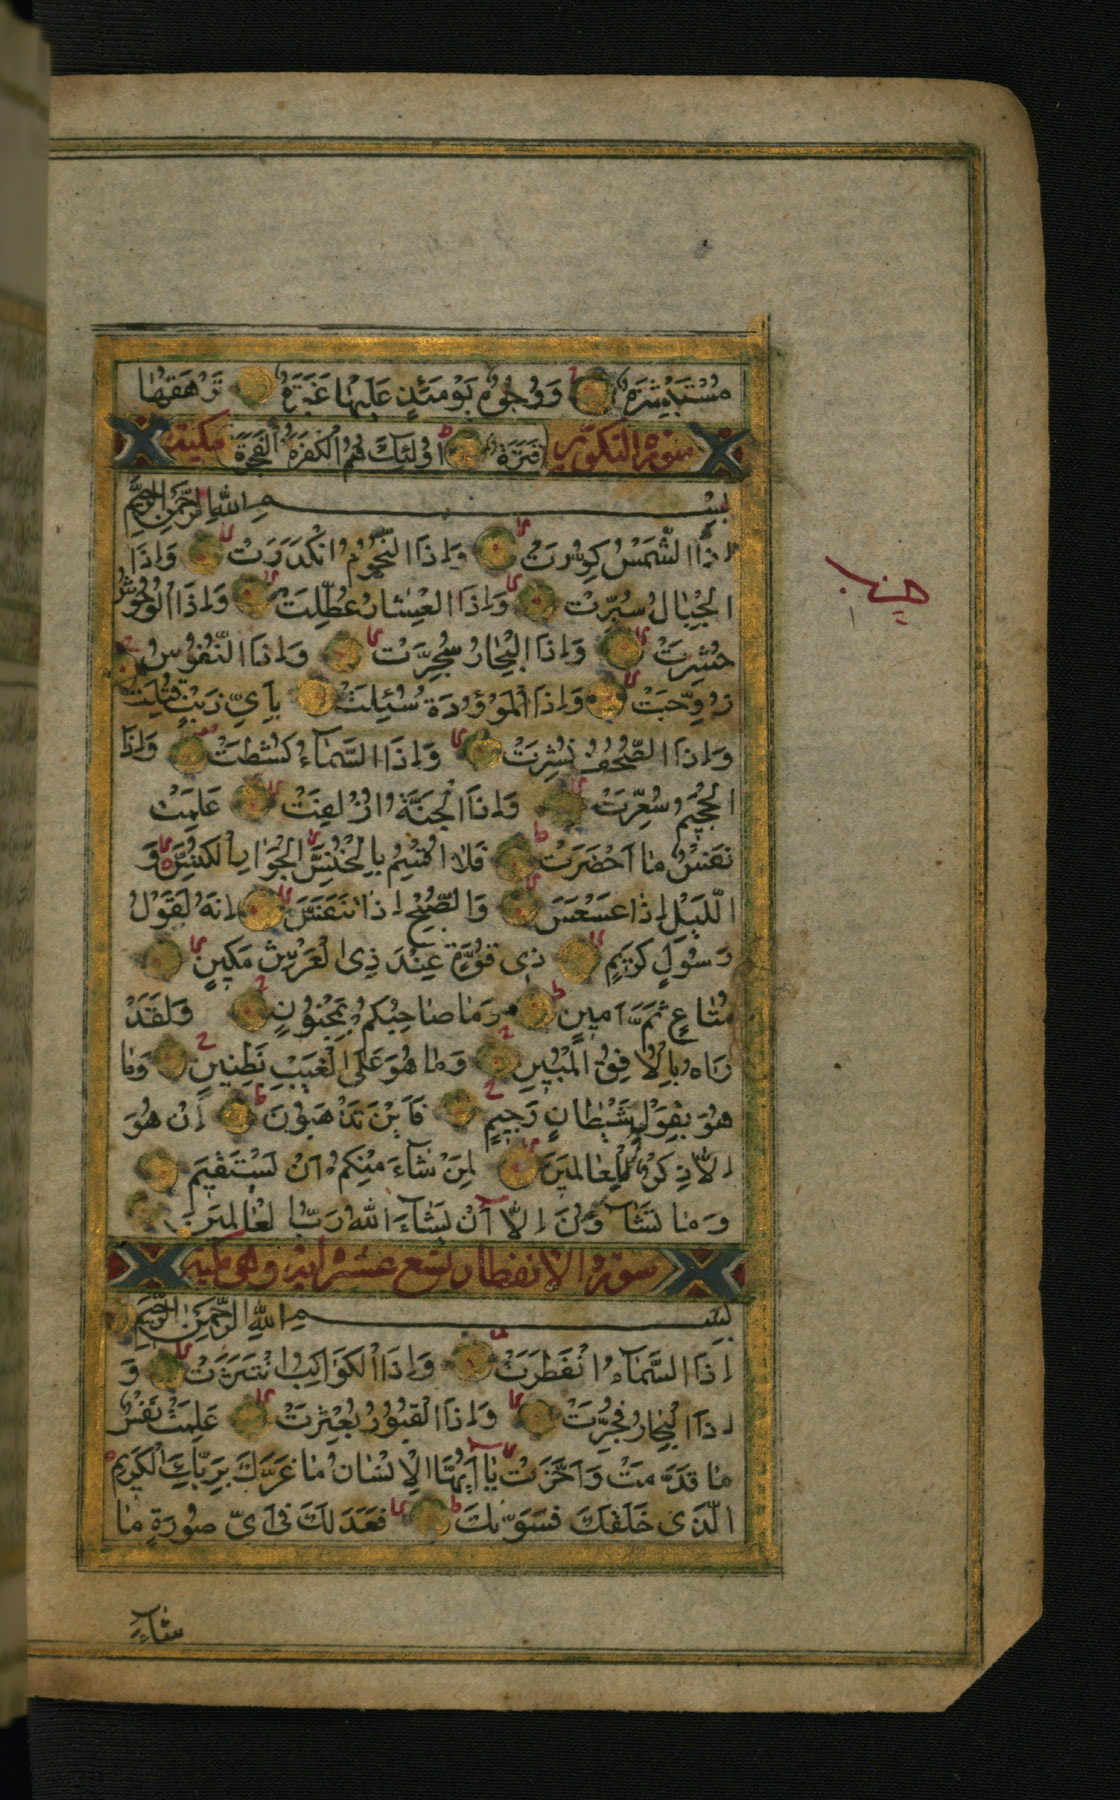 مُسْتَبْشِرَةٌ وَوُجُوهٌ يَوْمَئِذٍ عَلَيْهَا غَبَرَةٌ تَرْهَقُهَا
سورة التكوير قَتَرَةٌ اُولٰئِكَ هُمُ الْكَفَرَةُ الْفَجَرَةُ مكية
بِسْمِ اللّٰهِ الرَّحْمٰنِ الرَّحِيمِ
اِذَا الشَّمْسُ كُوِّرَتْ وَاِذَا النُّجُومُ انْكَدَرَتْ وَاِذَا
الْجِبَالُ سُيِّرَتْ وَاِذَا الْعِشَارُ عُطِّلَتْ وَاِذَا الْوُحُوشُ
حُشِرَتْ وَاِذَا الْبِحَارُ سُجِّرَتْ وَاِذَا النُّفُوسُ
زُوِّجَتْ وَاِذَا الْمَوْؤُدَةُ سُئِلَتْ بِاَيِّ ذَنْبٍ قُتِلَتْ
وَاِذَا الصُّحُفُ نُشِرَتْ وَاِذَا السَّمَاءُ كُشِطَتْ وَاِذَا
الْجَحِيمُ سُعِّرَتْ وَاِذَا الْجَنَّةُ اُزْلِفَتْ عَلِمَتْ
نَفْسٌ مَا اَحْضَرَتْ فَلَا اُقْسِمُ بِالْخُنَّسِ الْجَوَارِ الْكُنَّسِ وَ
الَّيْلِ اِذَا عَسْعَسَ وَالصُّبْحِ اِذَا تَنَفَّسَ اِنَّهُ لَقَوْلُ
رَسُولٍ كَرِيمٍ ذِي قُوَّةٍ عِنْدَ ذِي الْعَرْشِ مَكِينٍ
مُطَاعٍ ثَمَّ اَمِينٍ وَمَا صَاحِبُكُمْ بِمَجْنُونٍ وَلَقَدْ
رَاٰهُ بِالْاُفُقِ الْمُبِينِ وَمَا هُوَ عَلَى الْغَيْبِ بِظَنِينٍ وَمَا
هُوَ بِقَوْلِ شَيْطَانٍ رَجِيمٍ فَاَيْنَ تَذْهَبُونَ اِنْ هُوَ
اِلَّا ذِكْرٌ لِلْعَالَمِينَ لِمَنْ شَاءَ مِنْكُمْ اَنْ يَسْتَقِيمَ
وَمَا تَشَاؤُنَ اِلَّا اَنْ يَشَاءَ اللّٰهُ رَبُّ الْعَالَمِينَ
سورة الانفطار تسع عشر اية وهى مكية
بِسْمِ اللّٰهِ الرَّحْمٰنِ الرَّحِيمِ
اِذَا السَّمَاءُ انْفَطَرَتْ وَاِذَا الْكَوَاكِبُ انْتَثَرَتْ وَ
اِذَا الْبِحَارُ فُجِّرَتْ وَاِذَا الْقُبُورُ بُعْثِرَتْ عَلِمَتْ نَفْسٌ
مَا قَدَّمَتْ وَاَخَّرَتْ يَا اَيُّهَا الْاِنْسَانُ مَا غَرَّكَ بِرَبِّكَ الْكَرِيمِ
الَّذِي خَلَقَكَ فَسَوّٰيكَ فَعَدَلَكَ فِي اَيِّ صُورَةٍ مَا
شاء
حزب